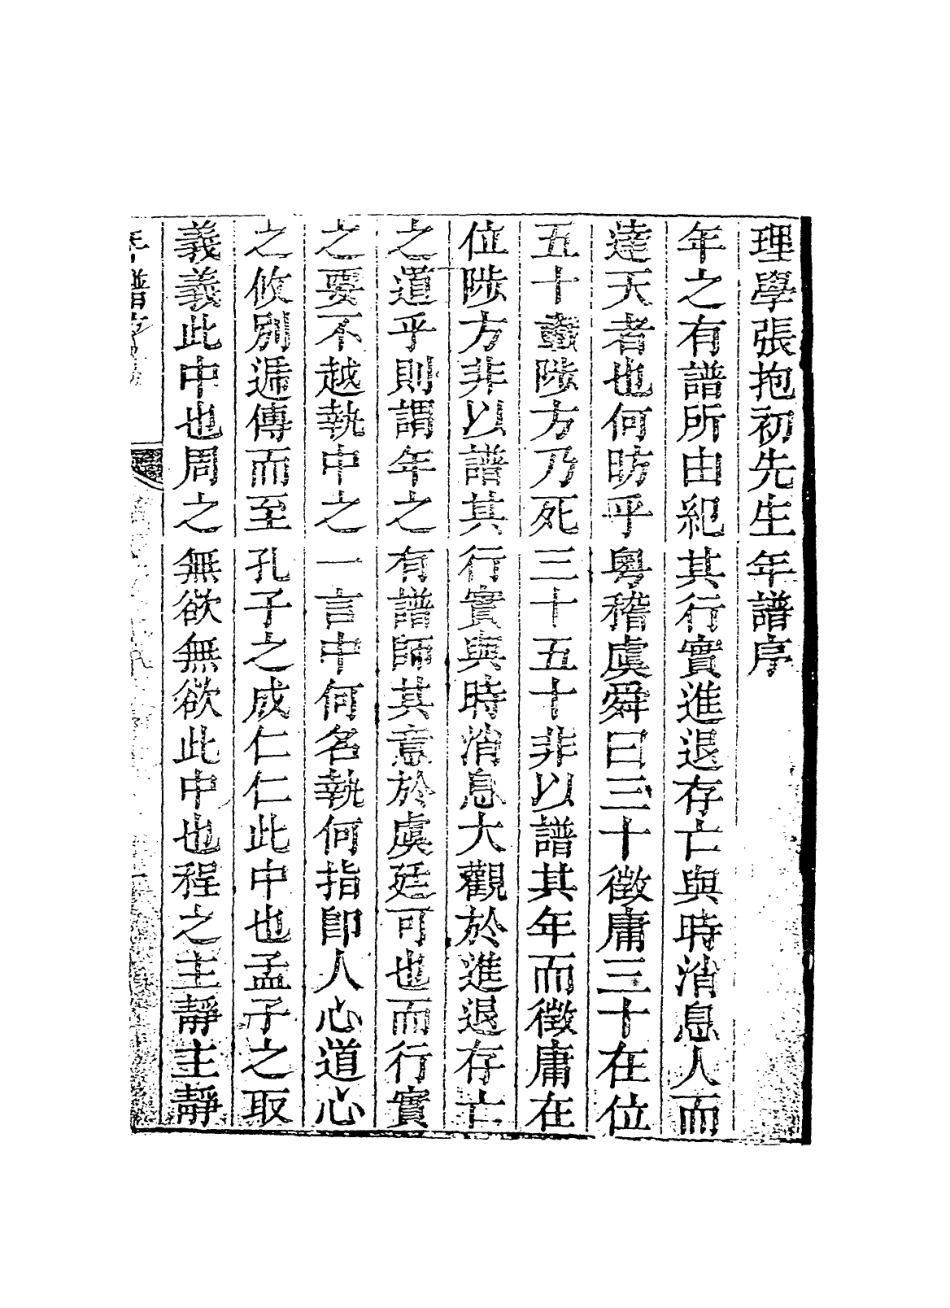 理學張抱初先生年譜序
年之有譜所由紀其行實進退存亡與時消息人而
達天者也何昉乎粵稽虞舜曰三十徵庸三十在位
五十載陟方乃死三十五十非以譜其年而徵庸在
位陟方非以譜其行實與時消息大觀於進退存亡
之道乎則謂年之有譜師其意於虞廷可也而行實
之要不越執中之一言中何名執何指卽人心道心
之攸別遞傳而至孔子之成仁仁此中也孟子之取
義義此中也周之無欲無欲此中也程之主靜主靜
年譜序